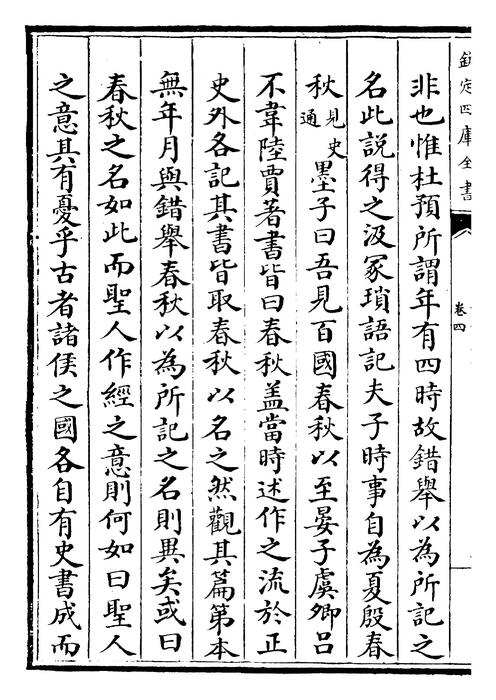 欽定四庫全書
卷四
非也惟杜預所謂年有四時故錯舉以為所記之
名此説得之汲冢瑣語記夫子時事自為夏殷春
秋見史通墨子曰吾見百國春秋以至晏子虞卿吕
不韋陸賈著書皆曰春秋盖當時述作之流於正
史外各記其書皆取春秋以名之然觀其篇第本
無年月與錯舉春秋以為所記之名則異矣或曰
春秋之名如此而聖人作經之意則何如曰聖人
之意其有憂乎古者諸侯之國各自有史書成而